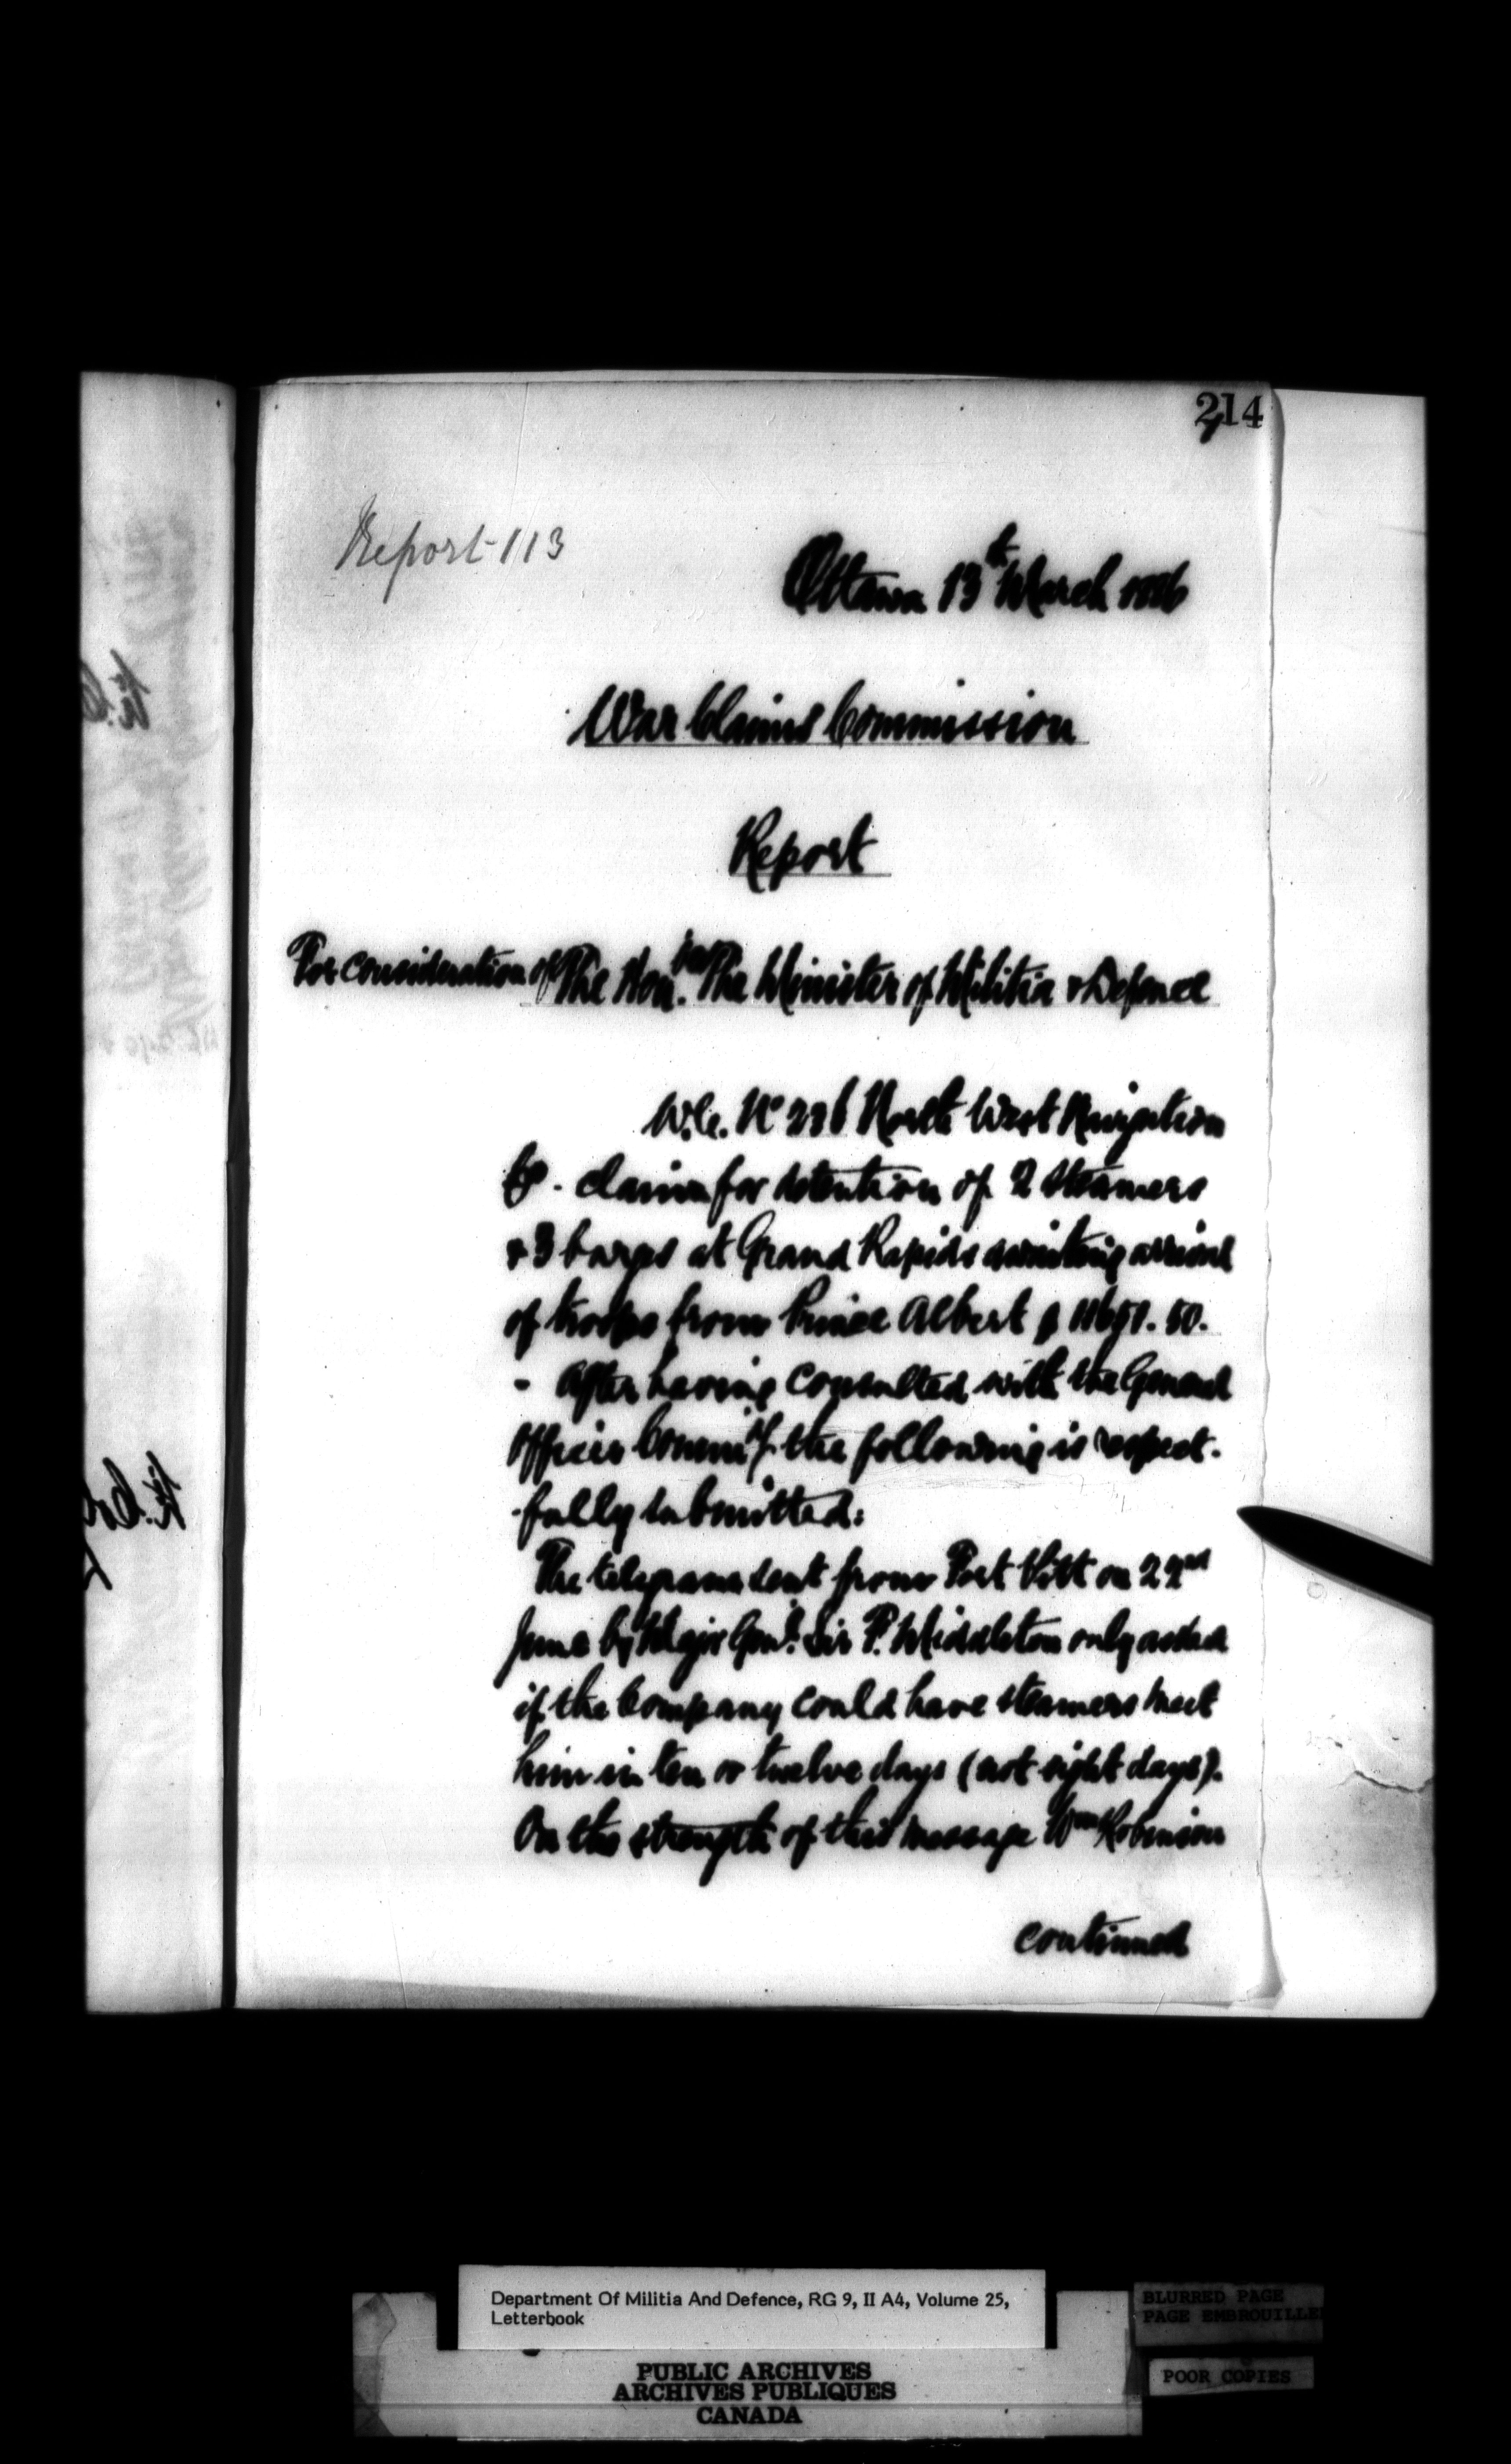 214
Report 113
Ottawa 13th March 1886
War Claims Commission
Report
For consideration of The Hon.ble The Minister of Militia & Defence
W.C. No 236 North West Navigation
Co. claim for detention of 2 steamers
& 3 barges at Grand Rapids awaiting arrival
of troops from Prince Albert $
- After having consulted with the General
Officer Comm'g. the following is respect-
-fully submitted:
The telegram sent from Fort Pitt on 22nd
June by Major Genl. Sir F. Middleton only asked
if the Company could have steamers meet
him in ten or twelve days (not eight days).
On the strength of this message Wm Robinson
continued
Department Of Militia And Defence, RG 9, II A4, Volume 25,
Letterbook
BLURRED PAGE
PAGE EMBROUILLEE
POOR COPIES
PUBLIC ARCHIVES
ARCHIVES PUBLIQUES
CANADA